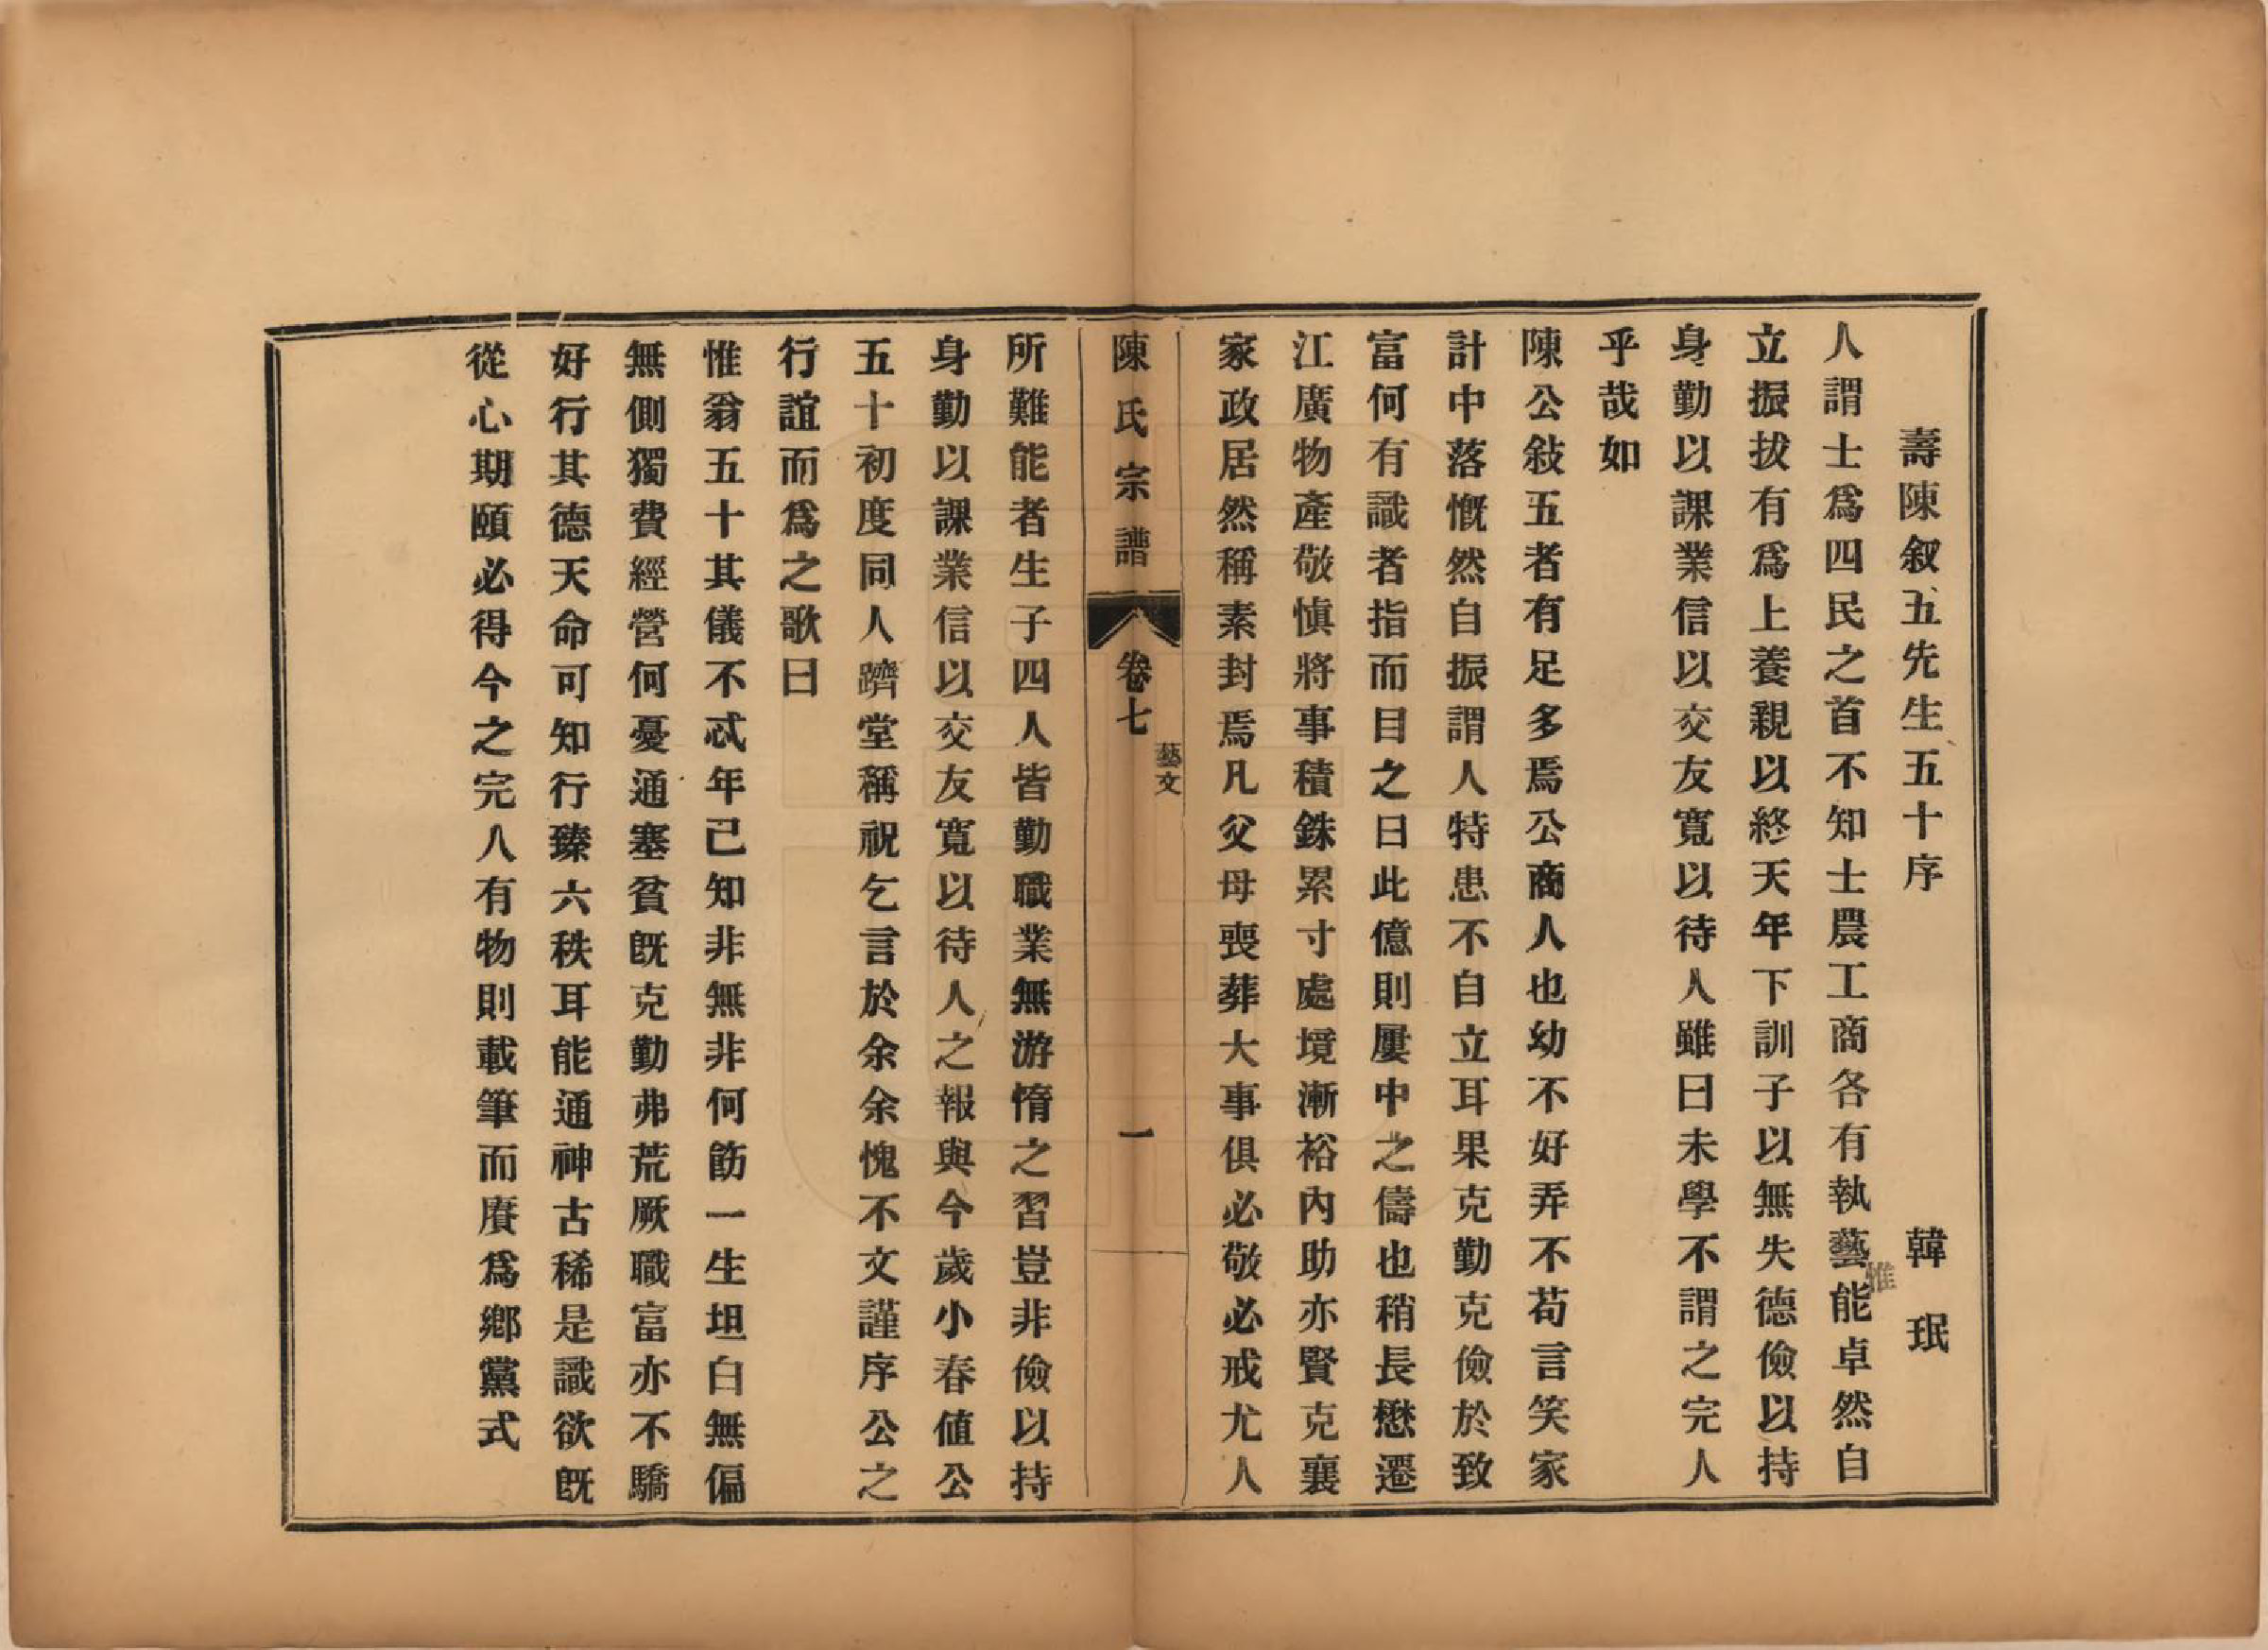 壽陳叙五先生五十序　韓珉
人謂士爲四民之首不知士農工商各有執藝能卓然自
惟
立振拔有爲上養親以終天年下訓子以無失德儉以持
身勤以課業信以交友寬以待人雖曰未學不謂之完人
乎哉如
陳公敍五者有足多焉公商人也幼不好弄不苟言笑家
計中落慨然自振謂人特患不自立耳果克勤克儉於致
富何有識者指而目之曰此億則屢中之儔也稍長懋遷
江廣物產敬愼將事積銖累寸處境漸裕內助亦賢克襄
家政居然稱素封焉凡父母喪葬大事俱必敬必戒尤人
陳氏宗譜　卷七　藝文　一
所難能者生子四人皆勤職業無游惰之習豈非儉以持
身勤以課業信以交友寬以待人之報與今歲小春值公
五十初度同人躋堂稱祝乞言於余余愧不文謹序公之
行誼而爲之歌曰
惟翁五十其儀不忒年已知非無非何飭一生坦白無偏
無側獨費經營何憂通塞貧旣克勤弗荒厥職富亦不驕
好行其德天命可知行臻六秩耳能通神古稀是識欲旣
從心期頤必得今之完人有物則載筆而賡爲鄉黨式